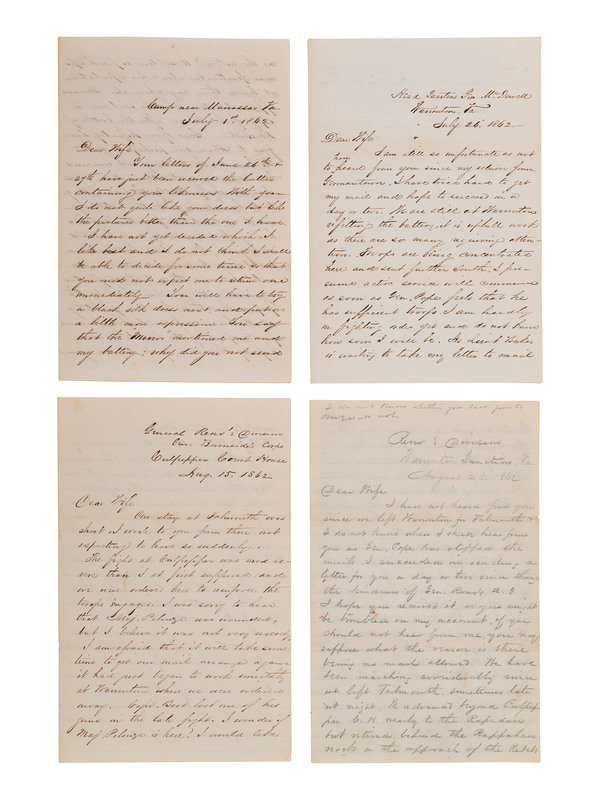 Camp near Manassas Va.
July 1st 1862
Dear Wife
Your letters of June 26th &
27th have just been received the latter
containing your likenesses. With you
I do not quite like your dress but like
the picture better than the one I have.
I have not yet decided which I
like best and I do not think I will
be able to decide for some time so that
you need not expect me to return one
immediately. You will have to try
a black silk dress next and put on
a little more expression. You say
that the Mirror mentioned me and
my battery; why did you not send
Head Quarters Gen. McDowell
Warrenton, Va
July 26. 1862
Dear Wife
I am still so unfortunate as not
to have heard from you since my return from
Germantown, I have tried hard to get
my mail and hope to succeed in a
day or two. We are still at Warrenton
refitting the battery, it is uphill work
as there are so many requiring atten-
tion. Troops are being concentrated
here and sent further South, I pre-
sume active service will commence
as soon as Gen. Pope feels that he
has sufficient troops. I am hardly
in fighting order yet and do not know
how soon I will be. As Lieut Baker
is waiting to take my letter to mail
General Reno's Division
Gen. Burnside's Corps
Culpepper Court House
Aug. 15. 1862
Dear Wife
Our stay at Falmouth was
short, I wrote to you from there not
expecting to leave so suddenly.
The fight at Culpepper was more se-
vere than I at first supposed and
we were ordered here to reinforce the
troops engaged. I was sorry to hear
that Maj. Pelouze was wounded,
but I believe it was not very severely.
I am afraid that it will take some
time to get our mail arranged again
it had just began to work smoothly
at Warrenton when we were ordered
away. Capt. Best lost one of his
guns in the late fight. I wonder if
Maj. Pelouze is here? I would like
I do not know whether you have gone to
or not
Reno's Division
Warrenton Junction, Va
August 26. 1862
Dear Wife
I have not heard from you
since we left Warrenton for Falmouth &
I do not know when I shall hear from
you as Gen. Pope has stopped the
mails. I succeeded in sending a
letter for you a day or two since through
the kindness of Gen. Reno's A. G.
I hope you received it or you might
be troubled on my account, if you
should not hear from me, you may
suppose what the reason is there
being no mails allowed. We have
been marching considerably since
we left Falmouth, sometimes late
at night. We advanced beyond Culpep-
per C. H. nearly to the Rapidan,
but retired behind the Rappahan-
nock on the approach of the Rebels